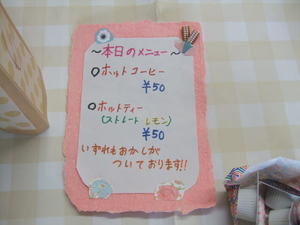 ～本日のメニュー～
○ホットコーヒー
¥50
○ホットティー
(ストレート レモン)
¥50
いずれもおかしが
ついております!!